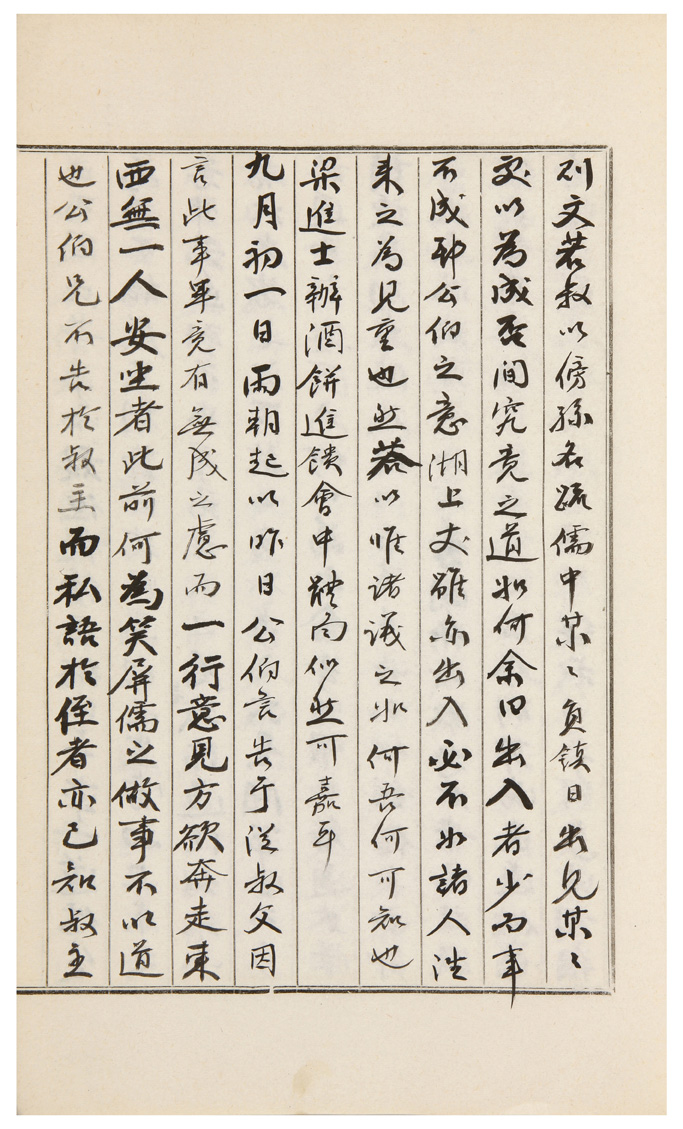 則文若叔以傍孫名疏儒中某〻負鎮日出見某〻
處以為成否間究竟之道如何余曰出入者少而事
不成耶公伯之意湖上丈雖亦出入必不如諸人
來之為見重也然若以唯諸議之如何吾何可知也
梁進士辦酒餅進饋會中體面似然可嘉耳
九月初一日雨朝起以昨日公伯言告于從叔父因
言此事畢竟有無成之慮而一行意見方欲奔走東
西無一人安坐者此前何為笑屏儒之做事不以道
也公伯兄不告於叔主而私語於侄者亦已知叔主